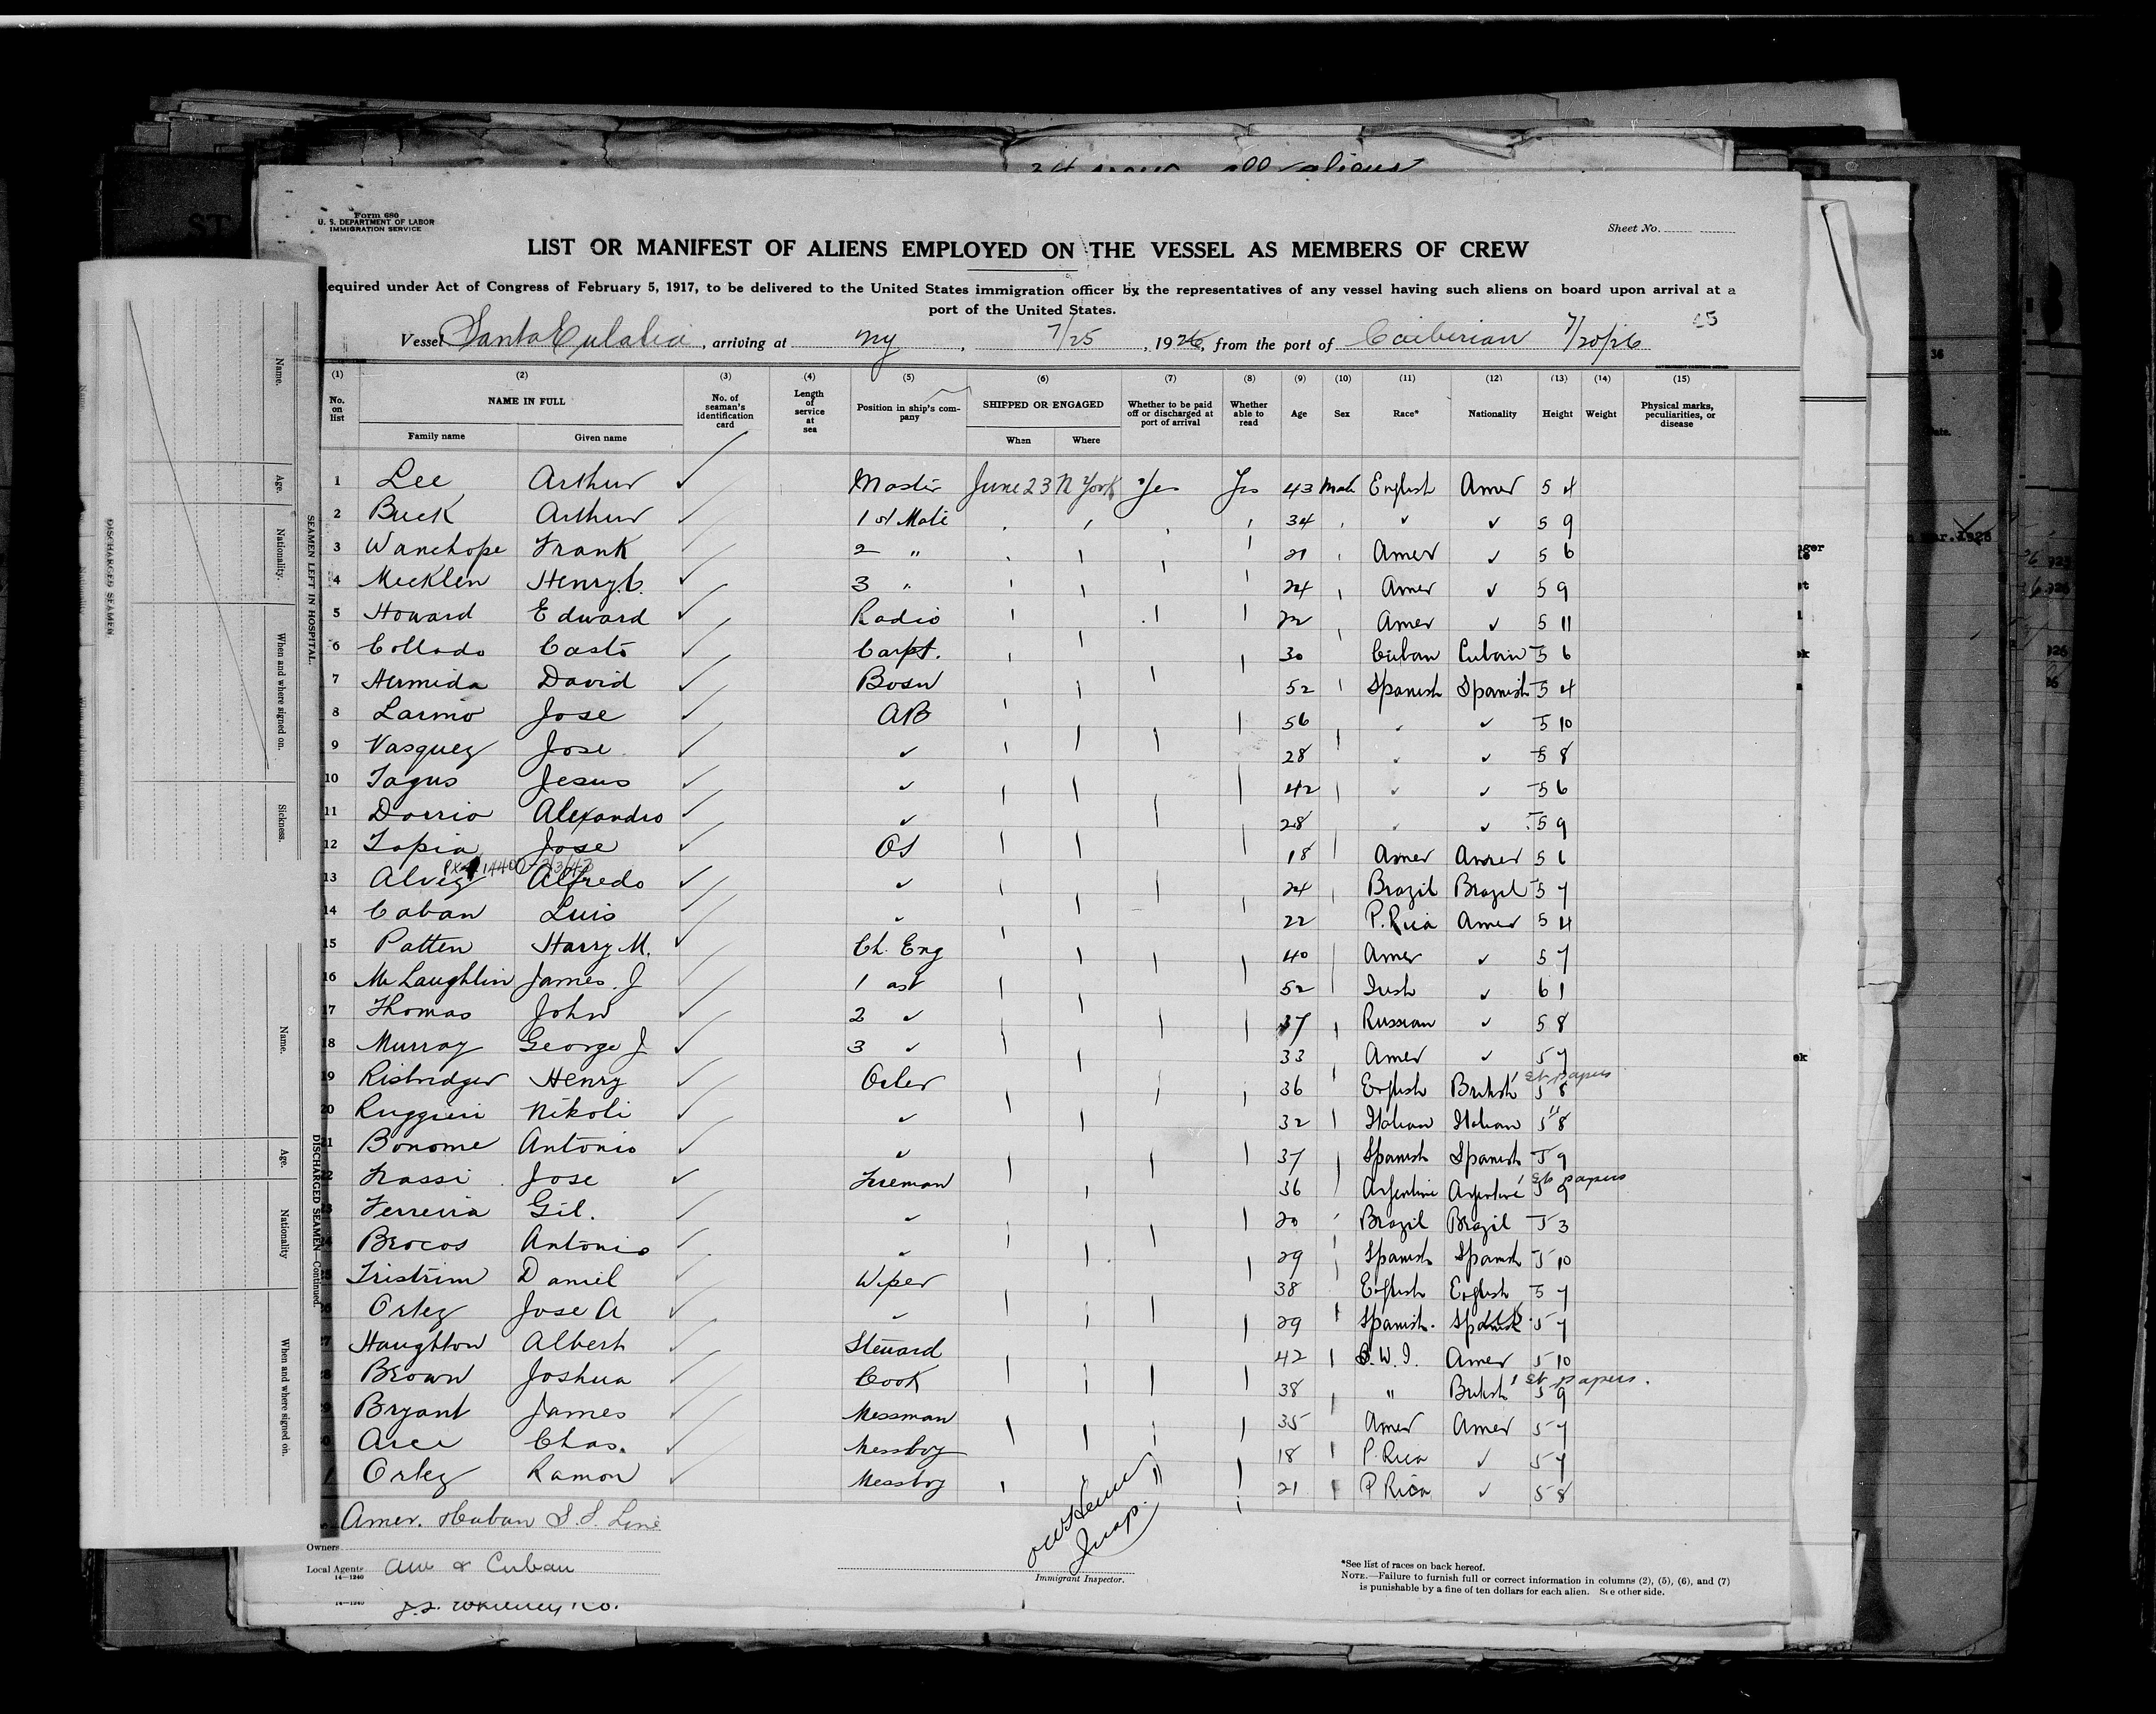 34 all aliens
Form 680
U. S. DEPARTMENT OF LABOR
IMMIGRATION SERVICE
Sheet No.
LIST OR MANIFEST OF ALIENS EMPLOYED ON THE VESSEL AS MEMBERS OF CREW
equired under Act of Congress of February 5, 1917, to be delivered to the United States immigration officer by the representatives of any vessel having such aliens on board upon arrival at a
port of the United States.
Vessel Santa Eulalia, arriving at ny, 7/25, 1926, from the port of Caiberian 7/20/26
(1) (2) (3) (4) (5) (6) (7) (8) (9) (10) (11) (12) (13) (14) (15)
No. on list NAME IN FULL No. of seaman's identification card Length of service at sea Position in ship's company SHIPPED OR ENGAGED Whether to be paid off or discharged at port of arrival Whether able to read Age Sex Race* Nationality Height Weight Physical marks, peculiarities, or disease
Family name Given name When Where
1 Lee Arthur ✓ Master June 23 N York Yes Yes 43 Male English Amer 5 4
2 Buck Arthur ✓ 1st Mate 34 ✓ ✓ 5 9
3 Wanchope Frank ✓ 2 " 21 Amer ✓ 5 6
4 Mecklen Henry C. ✓ 3 " 24 Amer ✓ 5 9
5 Howard Edward ✓ Radio 22 Amer ✓ 5 11
6 Collado Casto ✓ Carpt. 30 Cuban Cuban 5 6
7 Hermida David ✓ Bosn 52 Spanish Spanish 5 4
8 Larmo Jose ✓ AB 56 ✓ ✓ 5 10
9 Vasquez Jose ✓ ✓ 28 ✓ ✓ 5 8
10 Tagus Jesus ✓ ✓ 42 ✓ ✓ 5 6
11 Dorrio Alexandro ✓ ✓ 28 ✓ ✓ 5 9
12 Tapia Jose ✓ OS 18 Amer Amer 5 6
13 Alvez Alfredo ✓ ✓ 24 Brazil Brazil 5 7
14 Caban Luis ✓ ✓ 22 P. Rica Amer 5 4
15 Patten Harry M. ✓ Ch. Eng 40 Amer ✓ 5 7
16 McLaughlin James. J ✓ 1 ast 52 Irish ✓ 6 1
17 Thomas John ✓ 2 ✓ 37 Russian ✓ 5 8
18 Murray George J ✓ 3 ✓ 33 Amer ✓ 5 7
19 Risbridger Henry ✓ Oiler 36 English British 5 8 papers
20 Ruggieri Nikoli ✓ ✓ 32 Italian Italian 5 8
21 Bonome Antonio ✓ ✓ 37 Spanish Spanish 5 9
22 Frassi Jose ✓ Fireman 36 Argentine Argentine 5 9 papers
23 Ferreira Gil. ✓ ✓ 20 Brazil Brazil 5 3
24 Brocos Antonio ✓ ✓ 29 Spanish Spanish 5 10
25 Tristrim Daniel ✓ Wiper 38 English English 5 7
26 Ortez Jose A ✓ ✓ 29 Spanish. 5 7
27 Haughton Albert ✓ Steward 42 B. W. I. Amer 5 10
28 Brown Joshua ✓ Cook 38 " British 5 9 papers.
29 Bryant James ✓ Messman 35 Amer Amer 5 7
30 Arce Chas. ✓ Messboy 18 P. Rica ✓ 5 7
Ortez Ramon ✓ Messboy 21 P Rica ✓ 5 8
Amer. & Cuban S. S. Line
Owners
Local Agents Am & Cuban
14—1240
Immigrant Inspector.
*See list of races on back hereof.
NOTE.—Failure to furnish full or correct information in columns (2), (5), (6), and (7)
is punishable by a fine of ten dollars for each alien. See other side.
14—1240
DISCHARGED SEAMEN.
SEAMEN LEFT IN HOSPITAL.
Name.
Age.
Nationality.
When and where signed on.
Sickness.
DISCHARGED SEAMEN—Continued.
Name.
Age.
Nationality
When and where signed on.